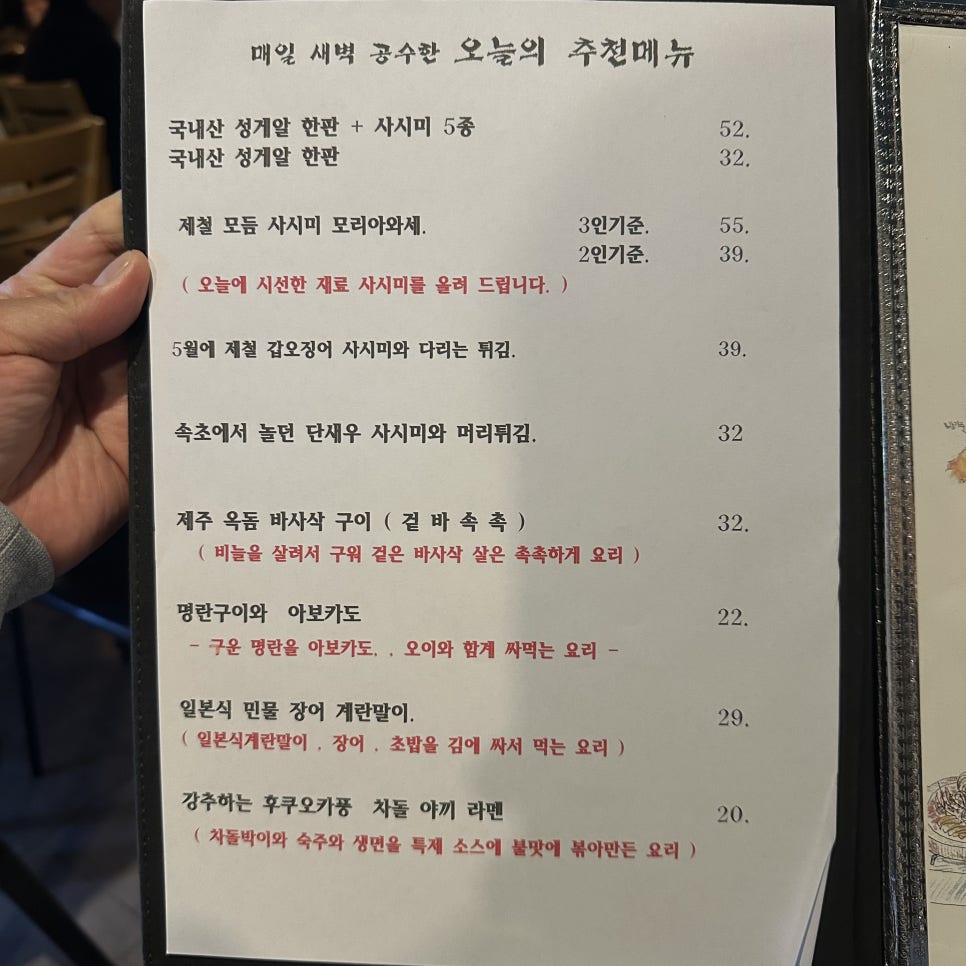 매일 새벽 공수한 오늘의 추천메뉴
국내산 성게알 한판 + 사시미 5종 52.
국내산 성게알 한판 32.
제철 모듬 사시미 모리아와세. 3인기준. 55.
2인기준. 39.
( 오늘에 시선한 재료 사시미를 올려 드립니다. )
5월에 제철 갑오징어 사시미와 다리는 튀김. 39.
속초에서 놀던 단새우 사시미와 머리튀김. 32
제주 옥돔 바사삭 구이 ( 겉 바 속 촉 ) 32.
( 비늘을 살려서 구워 겉은 바사삭 살은 촉촉하게 요리 )
명란구이와 아보카도 22.
- 구운 명란을 아보카도, . 오이와 함계 싸먹는 요리 -
일본식 민물 장어 계란말이. 29.
( 일본식계란말이 . 장어 . 초밥을 김에 싸서 먹는 요리 )
강추하는 후쿠오카풍 차돌 야끼 라멘 20.
( 차돌박이와 숙주와 생면을 특제 소스에 불맛에 볶아만든 요리 )